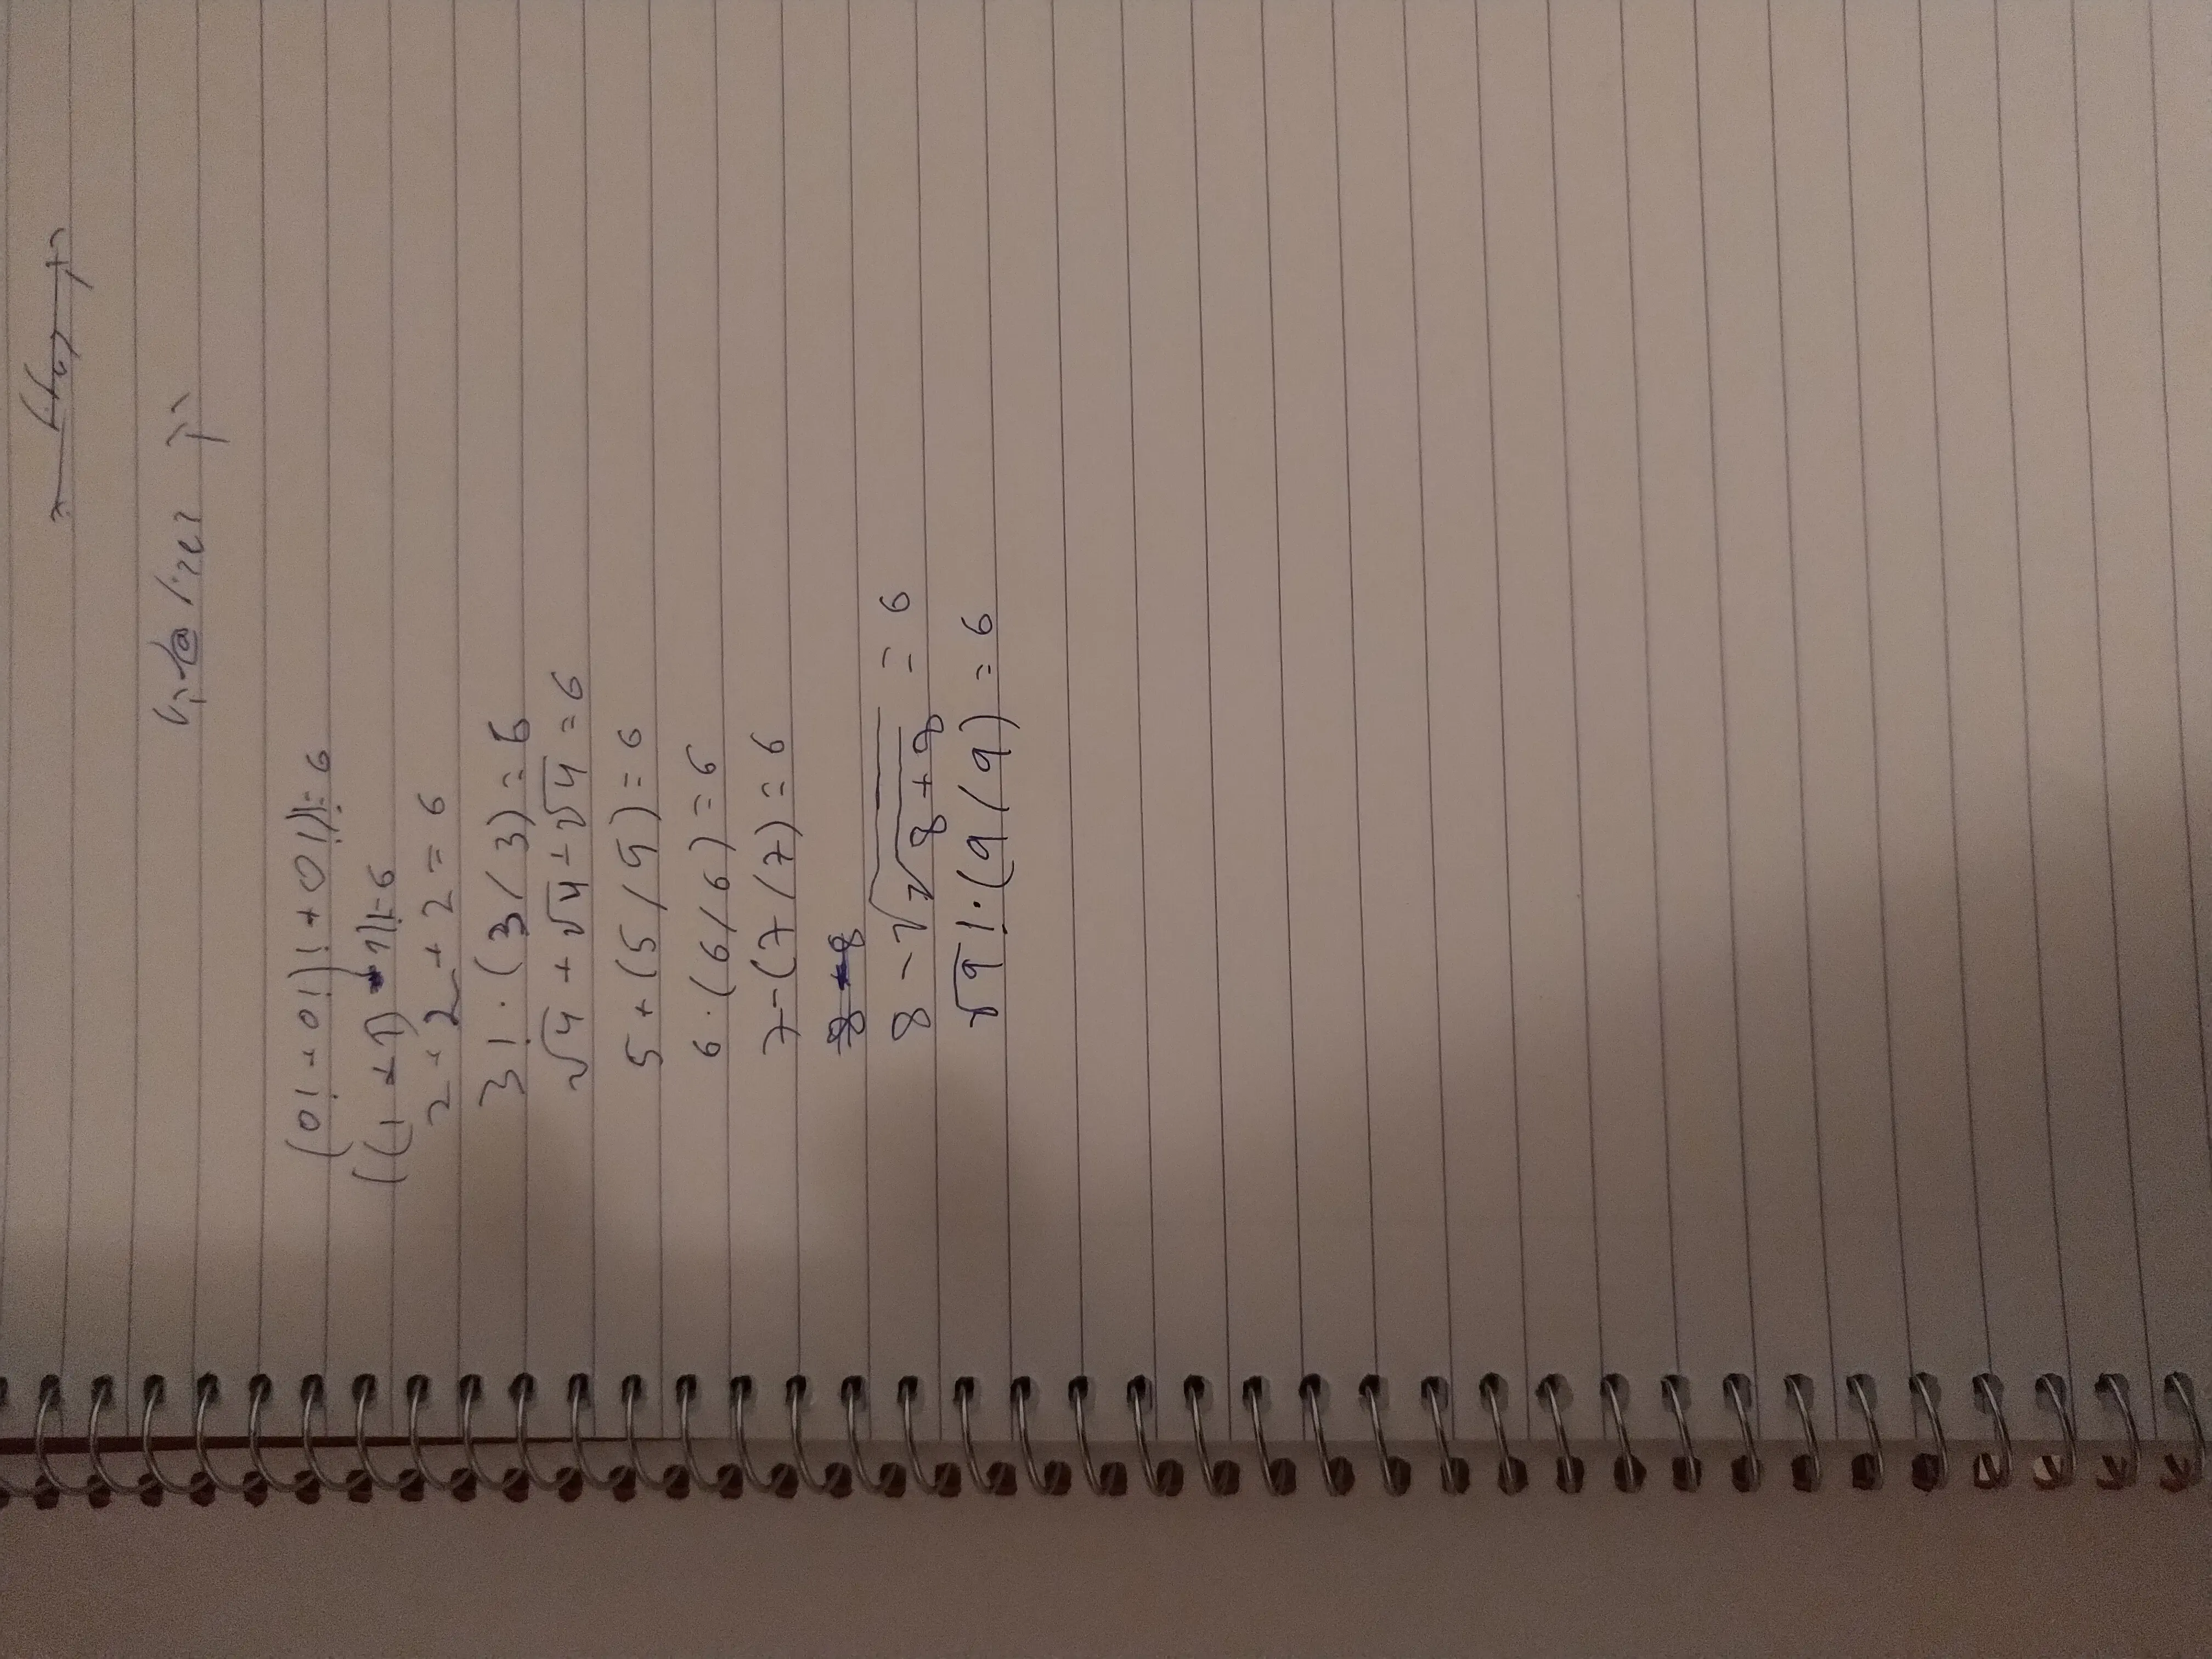 (0! + 0!)! + 0!)! = 6
((1 + 1) + 1)! = 6
2 + 2 + 2 = 6
3! · (3 / 3) = 6
√4 + √4 + √4 = 6
5 + (5 / 5) = 6
6 · (6 / 6) = 6
7 - (7 / 7) = 6
8 - √√8 + 8 = 6
√9! · (9 / 9) = 6